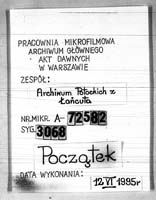 PRACOWNIA MIKROFILMOWA
ARCHIWUM GŁÓWNEGO
AKT DAWNYCH
W WARSZAWIE
ZESPÓŁ:
Archiwum Potockich z
Łańcuta
NR.MIKR. A-72582
SYG. 3068
Początek
DATA WYKONANIA:
12 VI 1995r